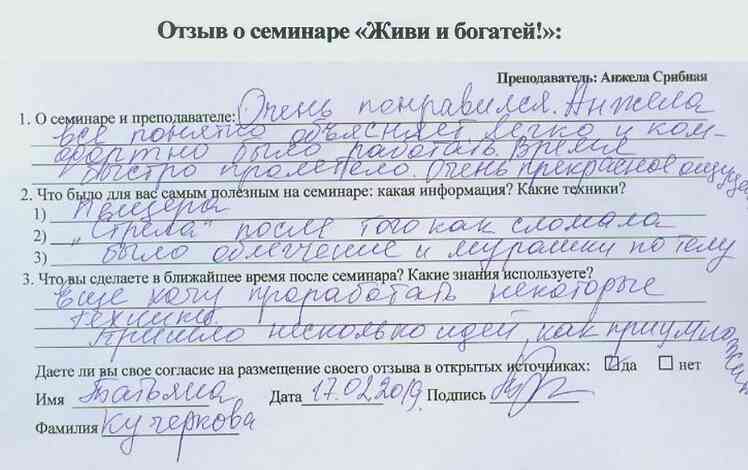 Отзыв о семинаре «Живи и богатей!»:
Преподаватель: Анжела Срибная
1. О семинаре и преподавателе: Очень понравился. Анжела
все понятно объясняет легко и ком-
фортно было работать. Время
быстро пролетело. Очень прекрасное ощуще
2. Что было для вас самым полезным на семинаре: какая информация? Какие техники?
1) Пещера
2) „Стрела" после того как сломала
3) было облегчение и мурашки по телу
3. Что вы сделаете в ближайшее время после семинара? Какие знания используете?
Еще хочу проработать некоторые
техники
Пришло несколько идей, как приумножить
Даете ли вы свое согласие на размещение своего отзыва в открытых источниках: ☑ да ☐ нет
Имя Татьяна Дата 17.02.2019. Подпись
Фамилия Кучеркова